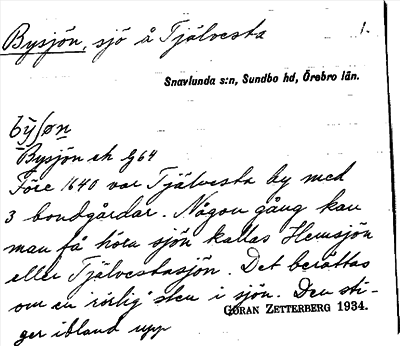 Bysjön, sjö å Tjälvesta 1.
Snavlunda s:n, Sundbo hd, Örebro län.
by̆ʃøn
Bysjön ek G64
Före 1640 var Tjälvesta by med
3 bondgårdar. Någon gång kan
man få höra sjön kallas Hemsjön
eller Tjälvestasjön. Det berättas
om en rörlig sten i sjön. Den sti-
ger ibland upp
GÖRAN ZETTERBERG 1934.